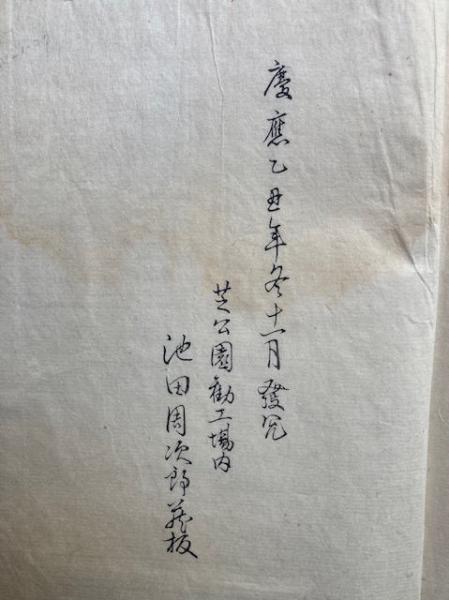 慶應乙丑年冬十一月發兌
芝公園勸工場内
池田周次郎藏板